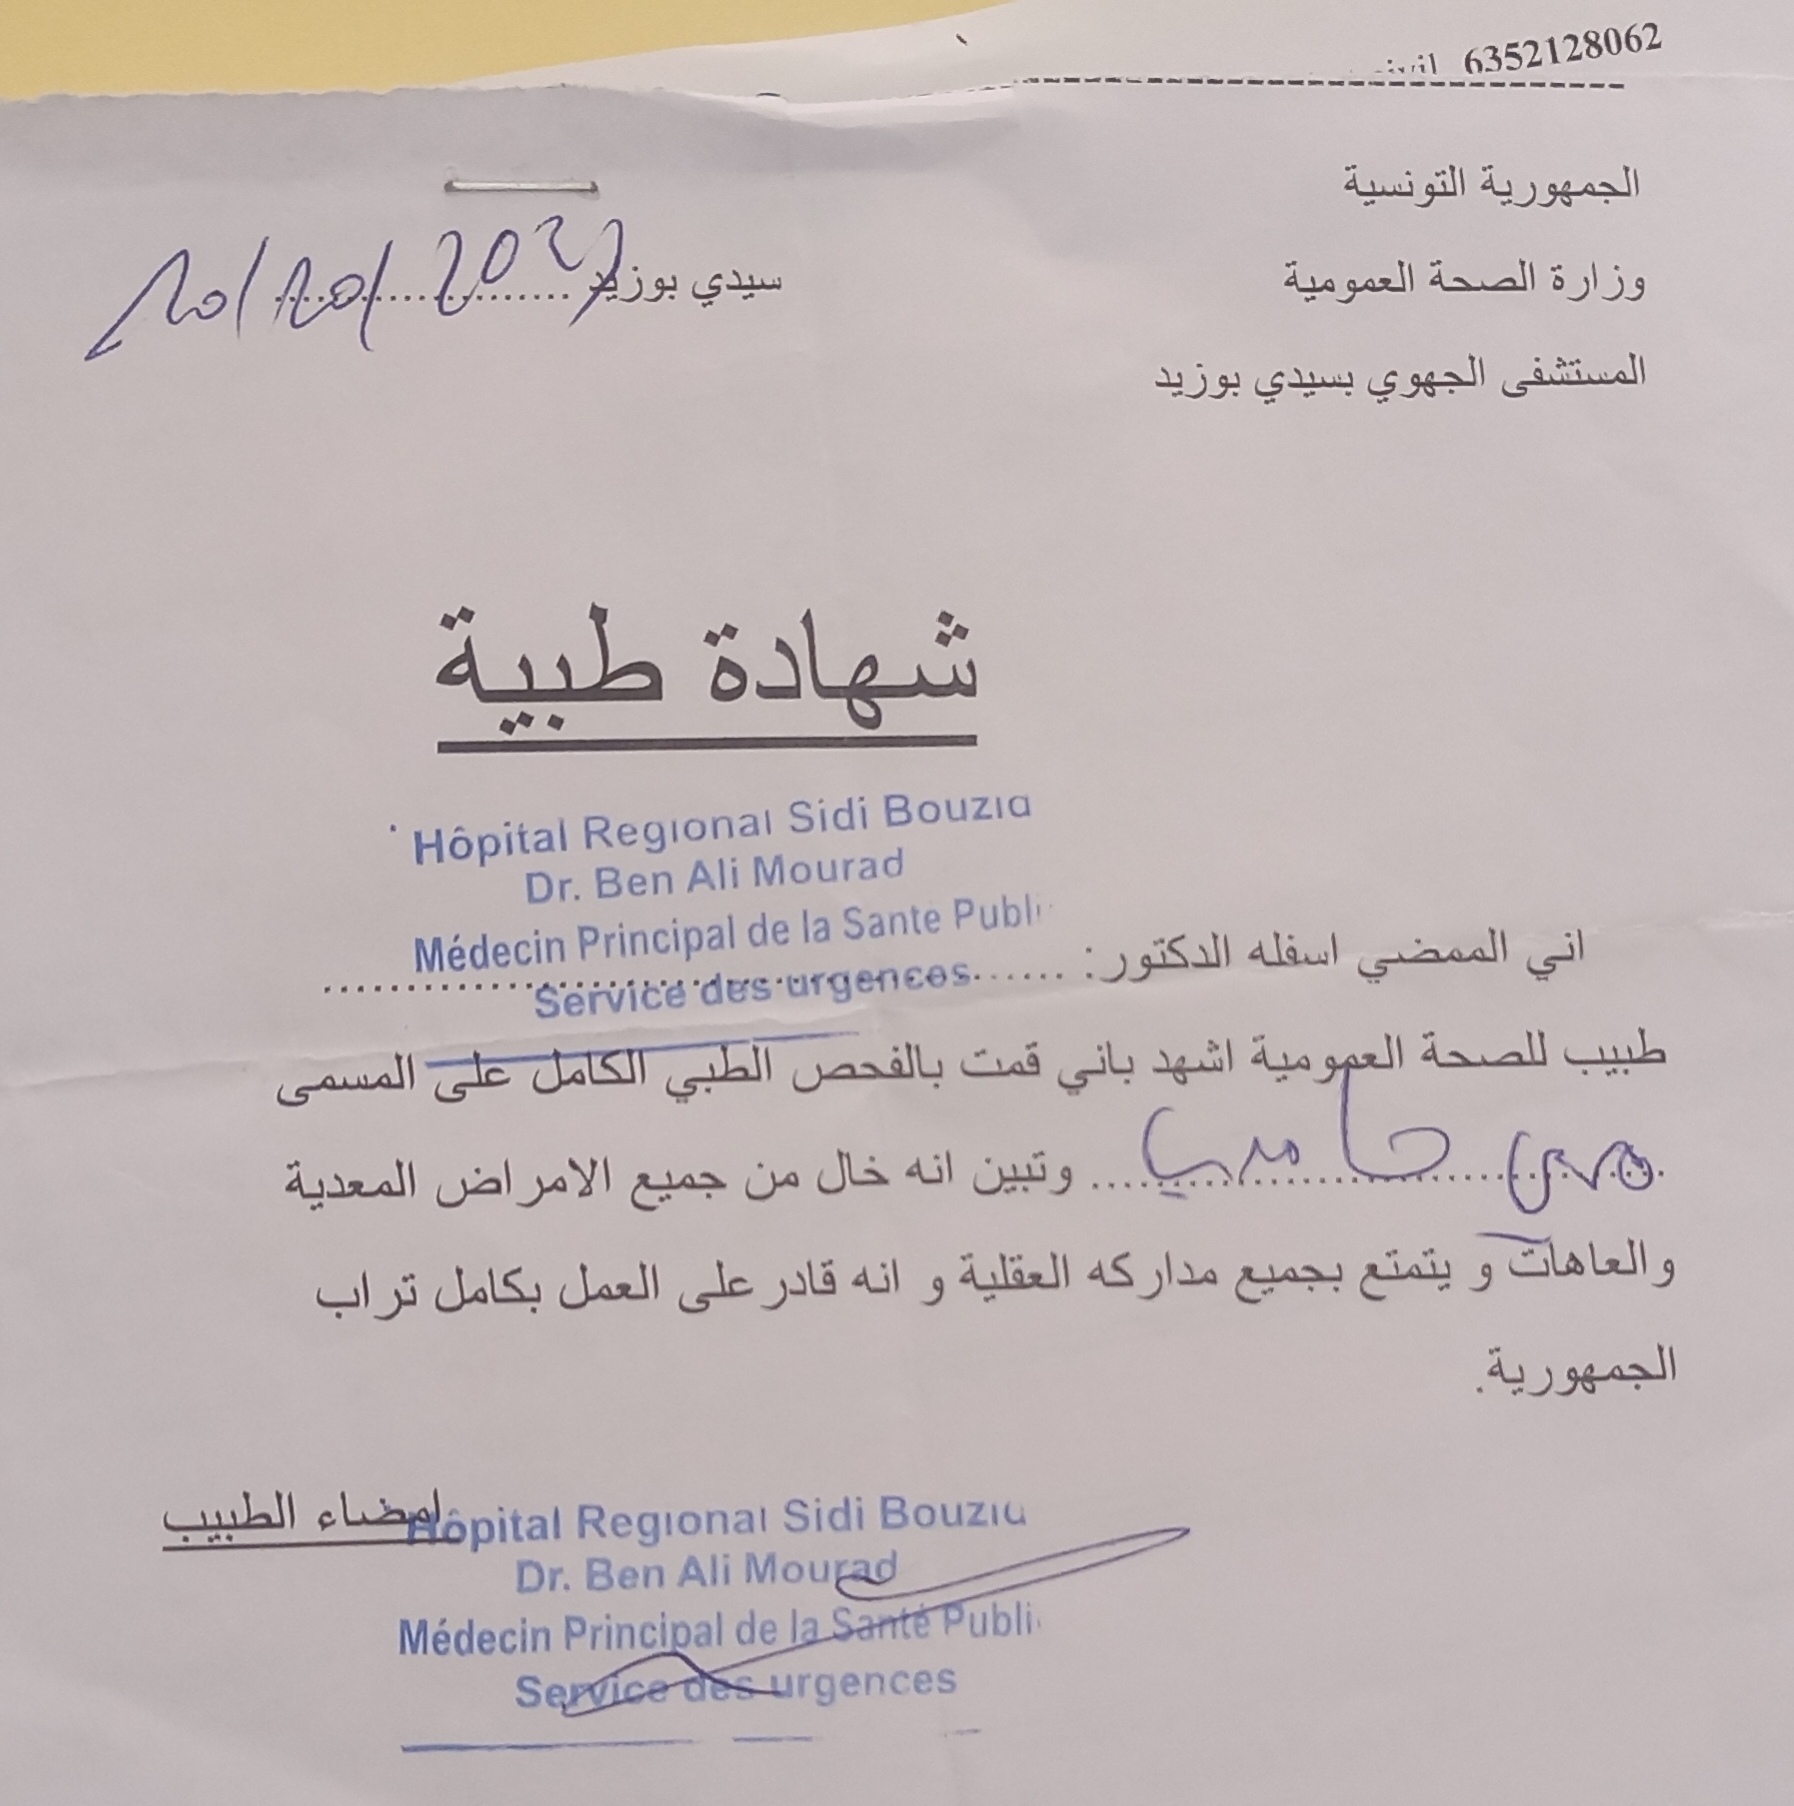 6352128062
الجمهورية التونسية
وزارة الصحة العمومية
سيدي بوزيد
المستشفى الجهوي بسيدي بوزيد
شهادة طبية
Hôpital Regional Sidi Bouzid
Dr. Ben Ali Mourad
Médecin Principal de la Santé Publi
Service des urgences
اني الممضي اسفله الدكتور:
طبيب للصحة العمومية اشهد باني قمت بالفحص الطبي الكامل على المسمى
وتبين انه خال من جميع الامراض المعدية
والعاهات و يتمتع بجميع مداركه العقلية و انه قادر على العمل بكامل تراب
الجمهورية.
امضاء الطبيب
Hôpital Regional Sidi Bouzid
Dr. Ben Ali Mourad
Médecin Principal de la Santé Publi
Service des urgences